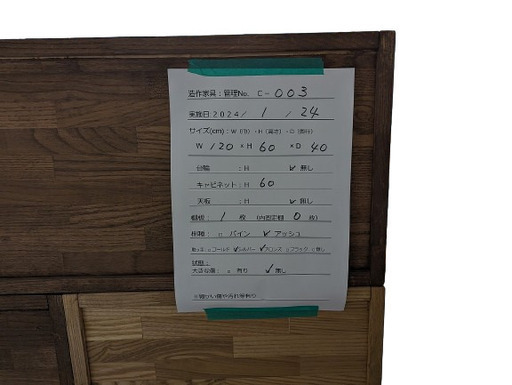 造作家具：管理No. C-003
実施日：2024/1/24
サイズ(cm)：W(巾)・H(高さ)・D(奥行)
W 120 ×H 60 ×D 40
台輪 ：H ✓無し
キャビネット：H 60
天板 ：H ✓無し
棚板： 1 枚 (内固定棚 0 枚)
樹種： □ パイン ✓ アッシュ
□ゴールド ✓シルバー ✓ブロンズ □ブラック □無し
状態：
大きな傷： □ 有り ✓無し
※細かい傷や汚れ等有り